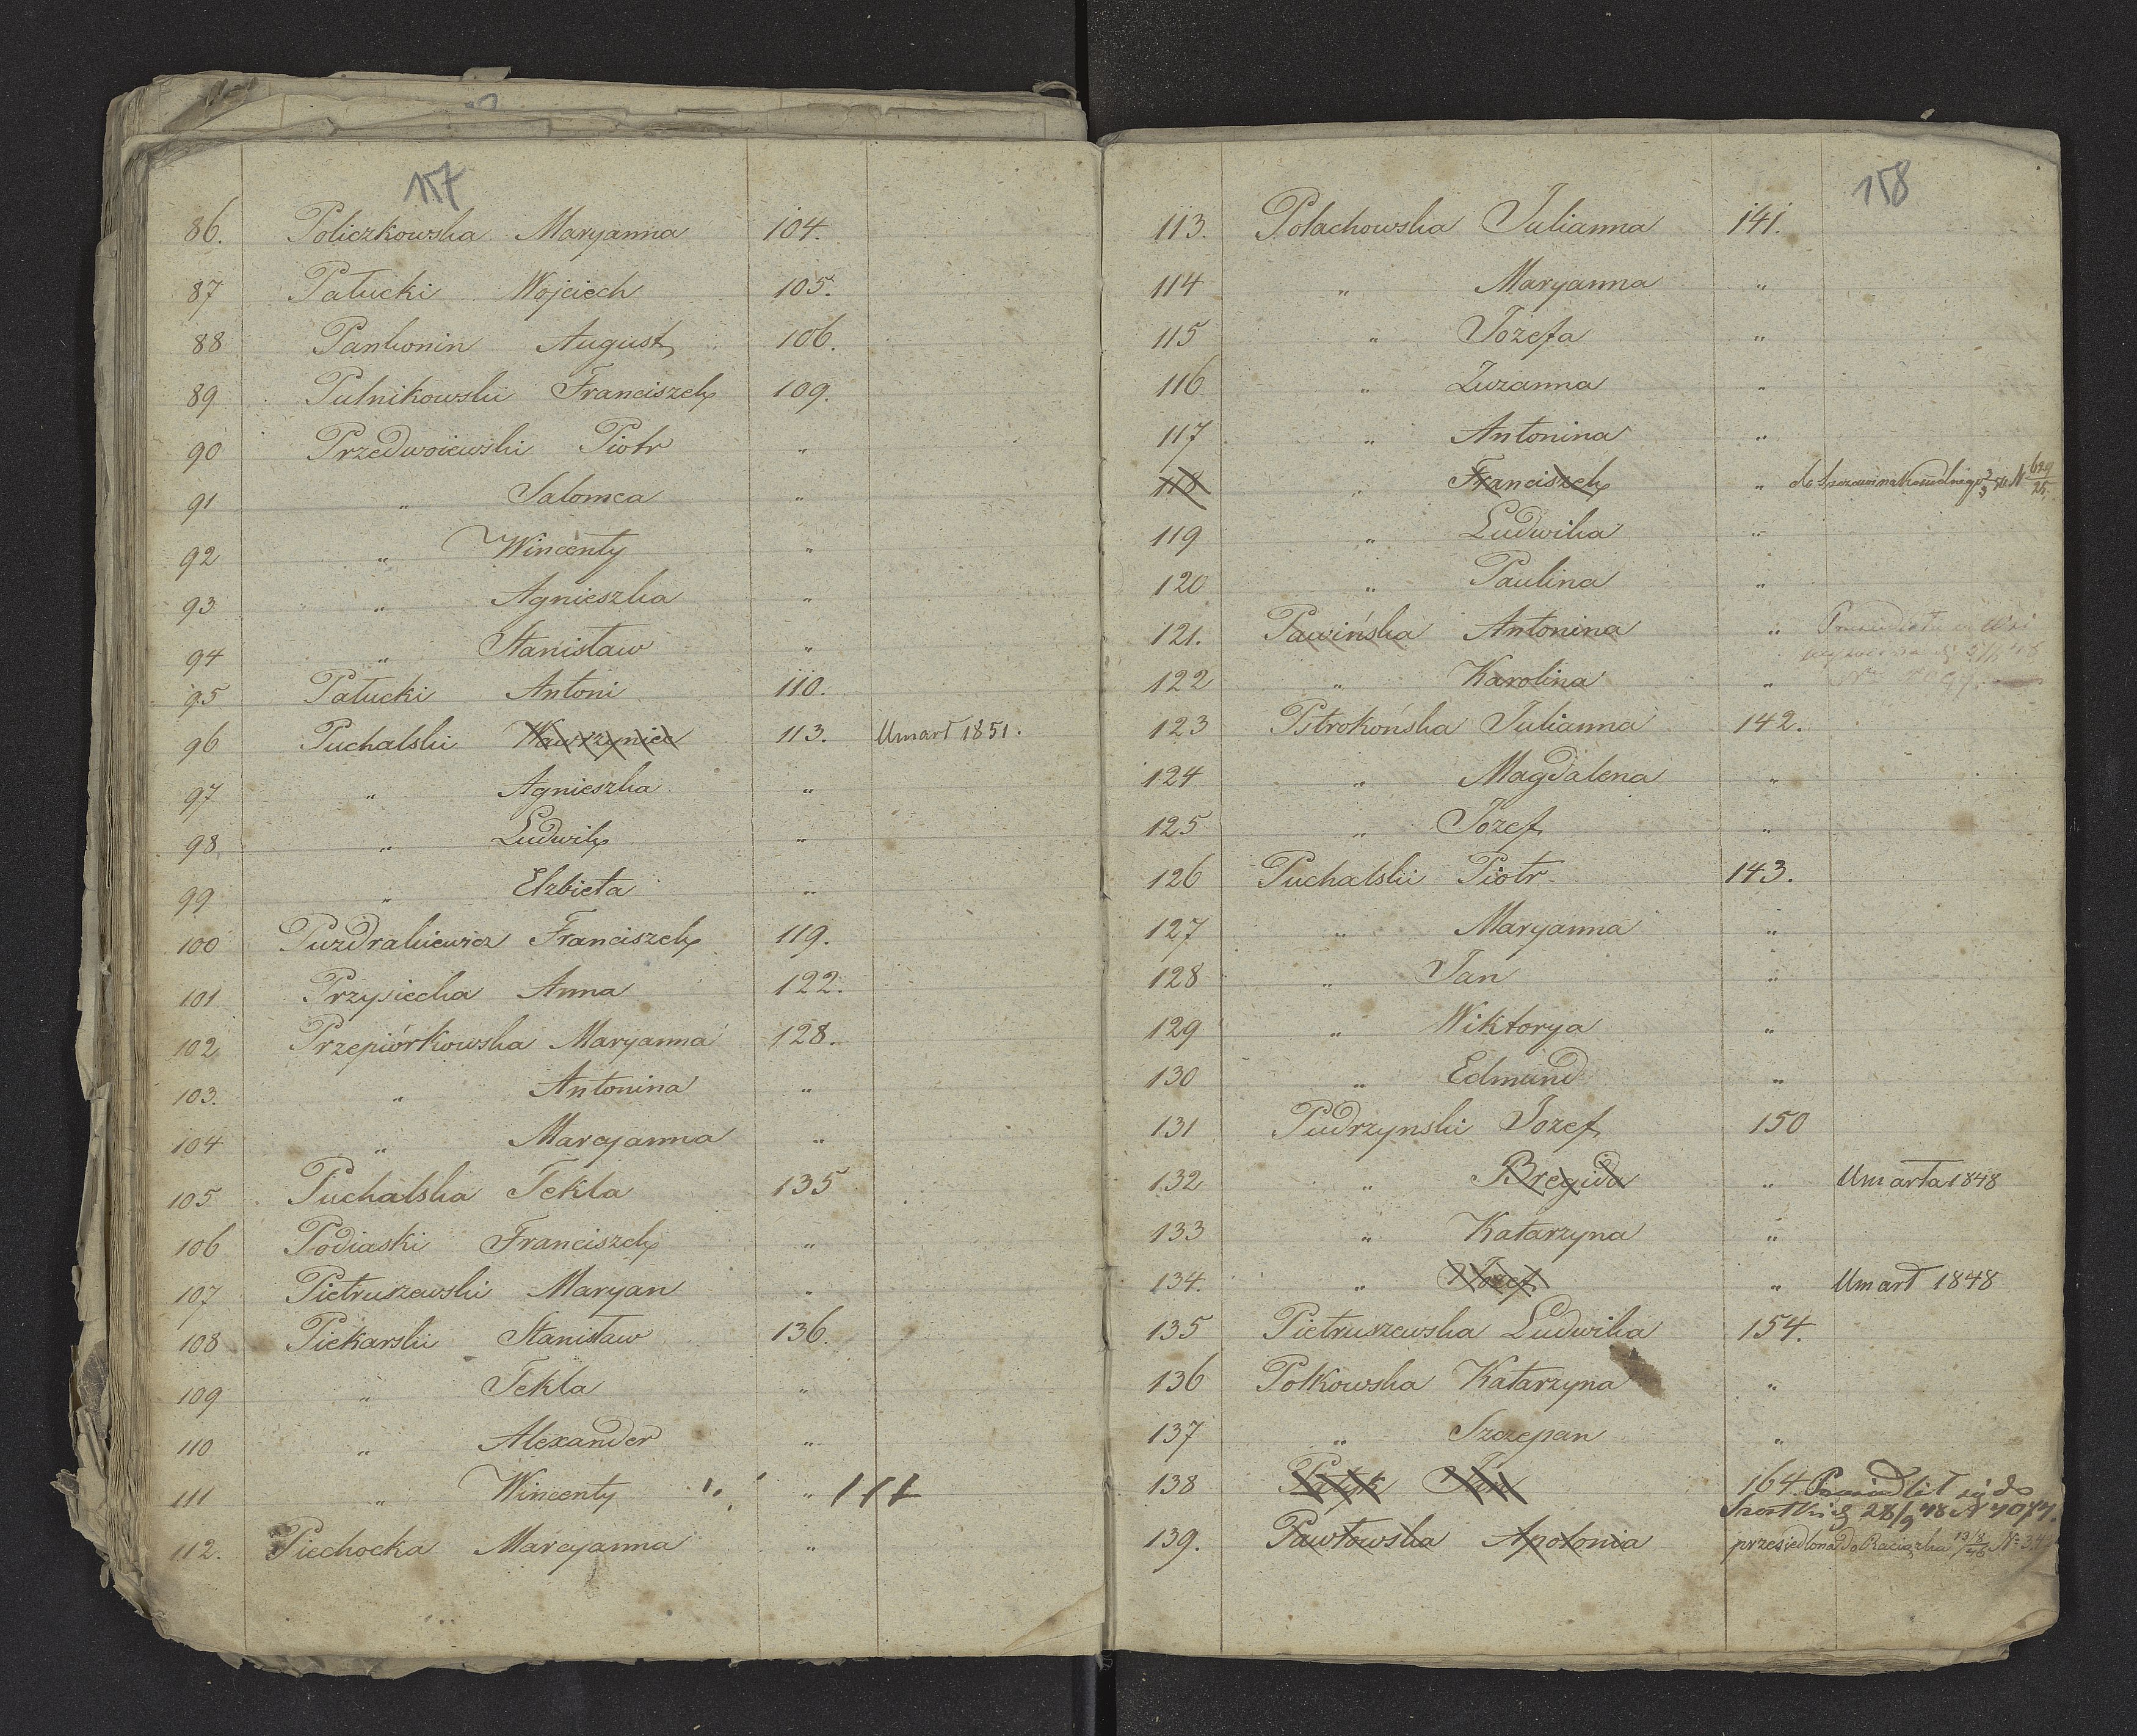 157
86. Policzkowska Maryanna 104.
87 Pałucki Wojciech 105.
88 Pankonin August 106.
89 Putnikowski Franciszek 109.
90 Przedwoiewski Piotr "
91 " Salomea "
92 " Wincenty "
93 " Agnieszka "
94 " Stanisław "
95 Pałucki Antoni 110.
96 Puchalski Wawrzyniec 113. Umarł 1851.
97 " Agnieszka "
98 " Ludwik "
99 " Elzbieta "
100 Puzdrakiewicz Franciszek 119.
101 Przysiecka Anna 122.
102 Przepiórkowska Maryanna 128.
103. " Antonina "
104 " Maryanna "
105 Puchalska Tekla 135
106 Podiaski Franciszek "
107 Pietruszewski Maryan "
108 Piekarski Stanisław 136.
109 " Tekla "
110 " Alexander "
111 " Wincenty "
112. Piechocka Maryanna "
158
113. Połachowska Julianna 141.
114 " Maryanna "
115 " Jozefa "
116 " Zuzanna "
117 " Antonina "
118 " Franciszek " do N 629/25
119 " Ludwika "
120 " Paulina "
121. Pawińska Antonina "
122 " Karolina "
123 Pstrokońska Julianna 142.
124 " Magdalena "
125 " Jozef "
126 Puchalski Piotr 143.
127 " Maryanna "
128 " Jan "
129 " Wiktorya "
130 " Edmund "
131 Pudrzynski Jozef 150
132 " Bregida " Umarła 1848
133 " Katarzyna "
134. " Jozef " Umarł 1848
135 Pietruszewska Ludwika 154.
136 Polkowska Katarzyna "
137 " Szczepan "
138 Jan 164. się do
28/9 48 N 4077.
139. Pawłowska Apolonia przesiedlona do Raciążka 13/3 48 No